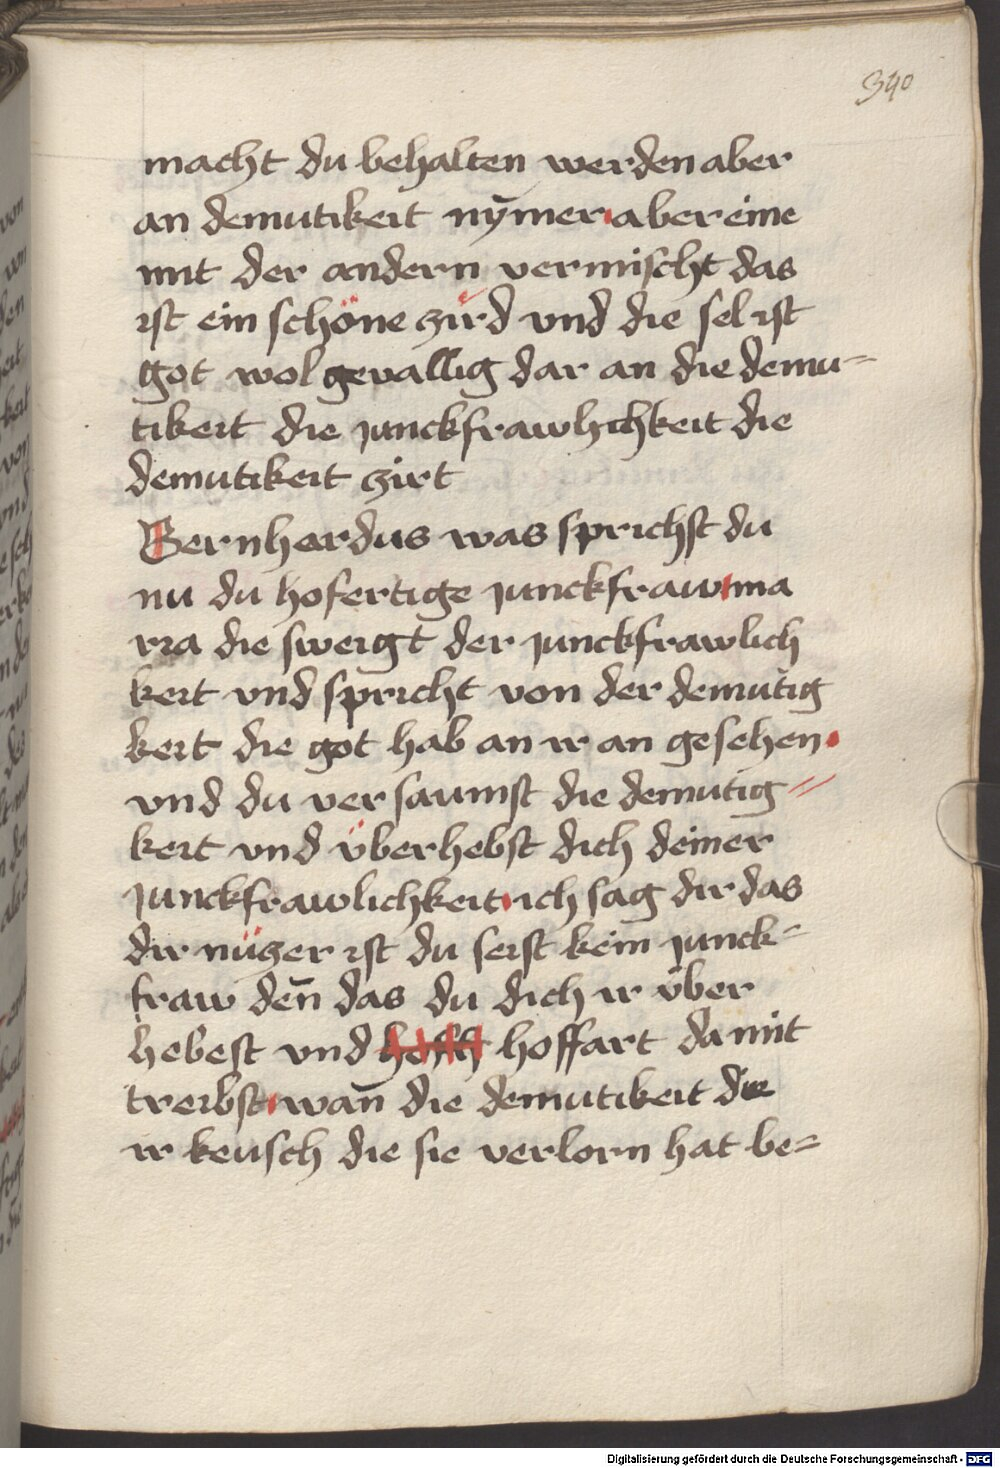 340
macht du behalten werden aber
an demutikeit nȳmer aber eine
mit der andern vermischt das
ist ein schöne zird vnd die sel ist
got wol gevallig dar an die demu=
tikeit die junckfrawlichkeit die
demutikeit zirt
Bernhardus was sprichst du
nu du hofertige junckfraw ma
ria die sweigt der junckfrawlich
keit vnd spricht von der demutig
keit die got hab an ir an gesehen
vnd du versaumst die demutig=
keit vnd überhebst dich deiner
junckfrawlichkeit ich sag dir das
dir nüczer ist du seist kein junck=
fraw den̄ das du dich ir über
hebest vnd hoffart da mit
treibst wan̄ die demutikeit die
ir keusch die sie verlorn hat be=
Digitalisierung gefördert durch die Deutsche Forschungsgemeinschaft - DFG